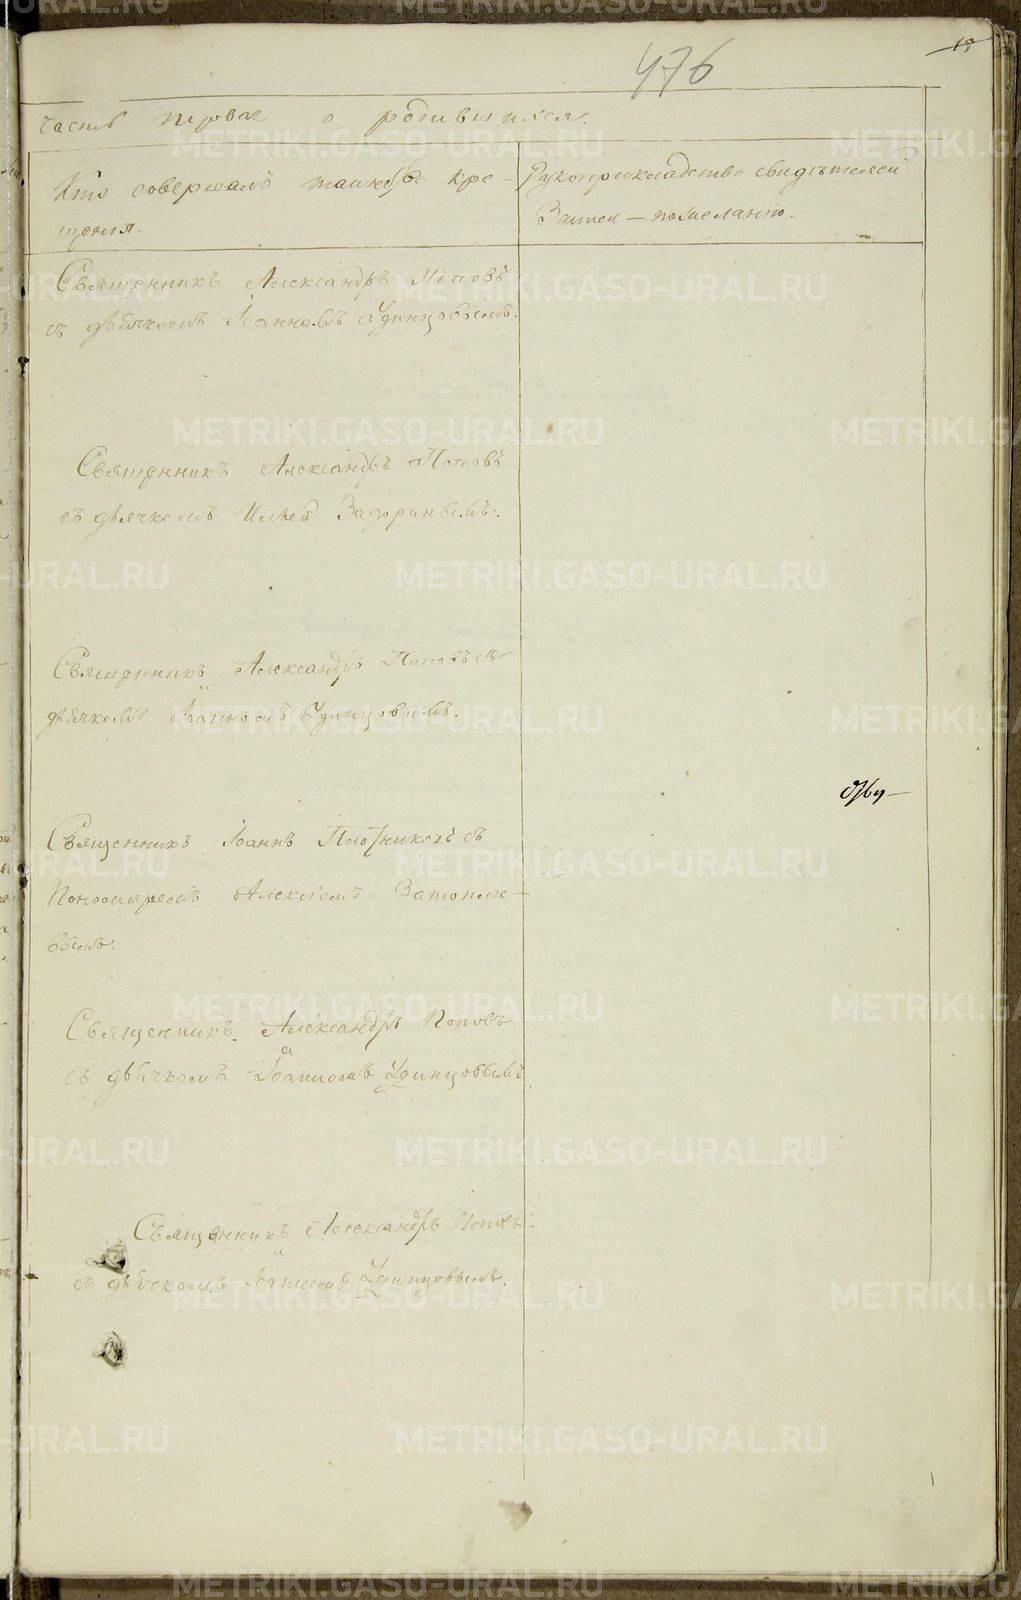 476
часть первая о родившихся.
Кто совершалъ таинство кре-
щенія.
Рукоприкладство свидѣтелей
Записи – по желанію.
Священникъ Александръ Поповъ
съ дьячкомъ Іоанномъ Удинцовымъ.
Священникъ Александръ Поповъ
съ дьячкомъ Ильей Задоринымъ.
Священникъ Александръ Поповъ съ
дьячкомъ Іоанномъ Удинцовымъ.
Священникъ Іоаннъ Плотниковъ съ
Пономаремъ Алексіемъ Затопляе-
вымъ.
Священникъ Александръ Поповъ
съ дьячкомъ Іоанномъ Удинцовымъ
Священникъ Александръ Поповъ
съ дьячкомъ Іоанномъ Удинцовымъ.
METRIKI.GASO-URAL.RU